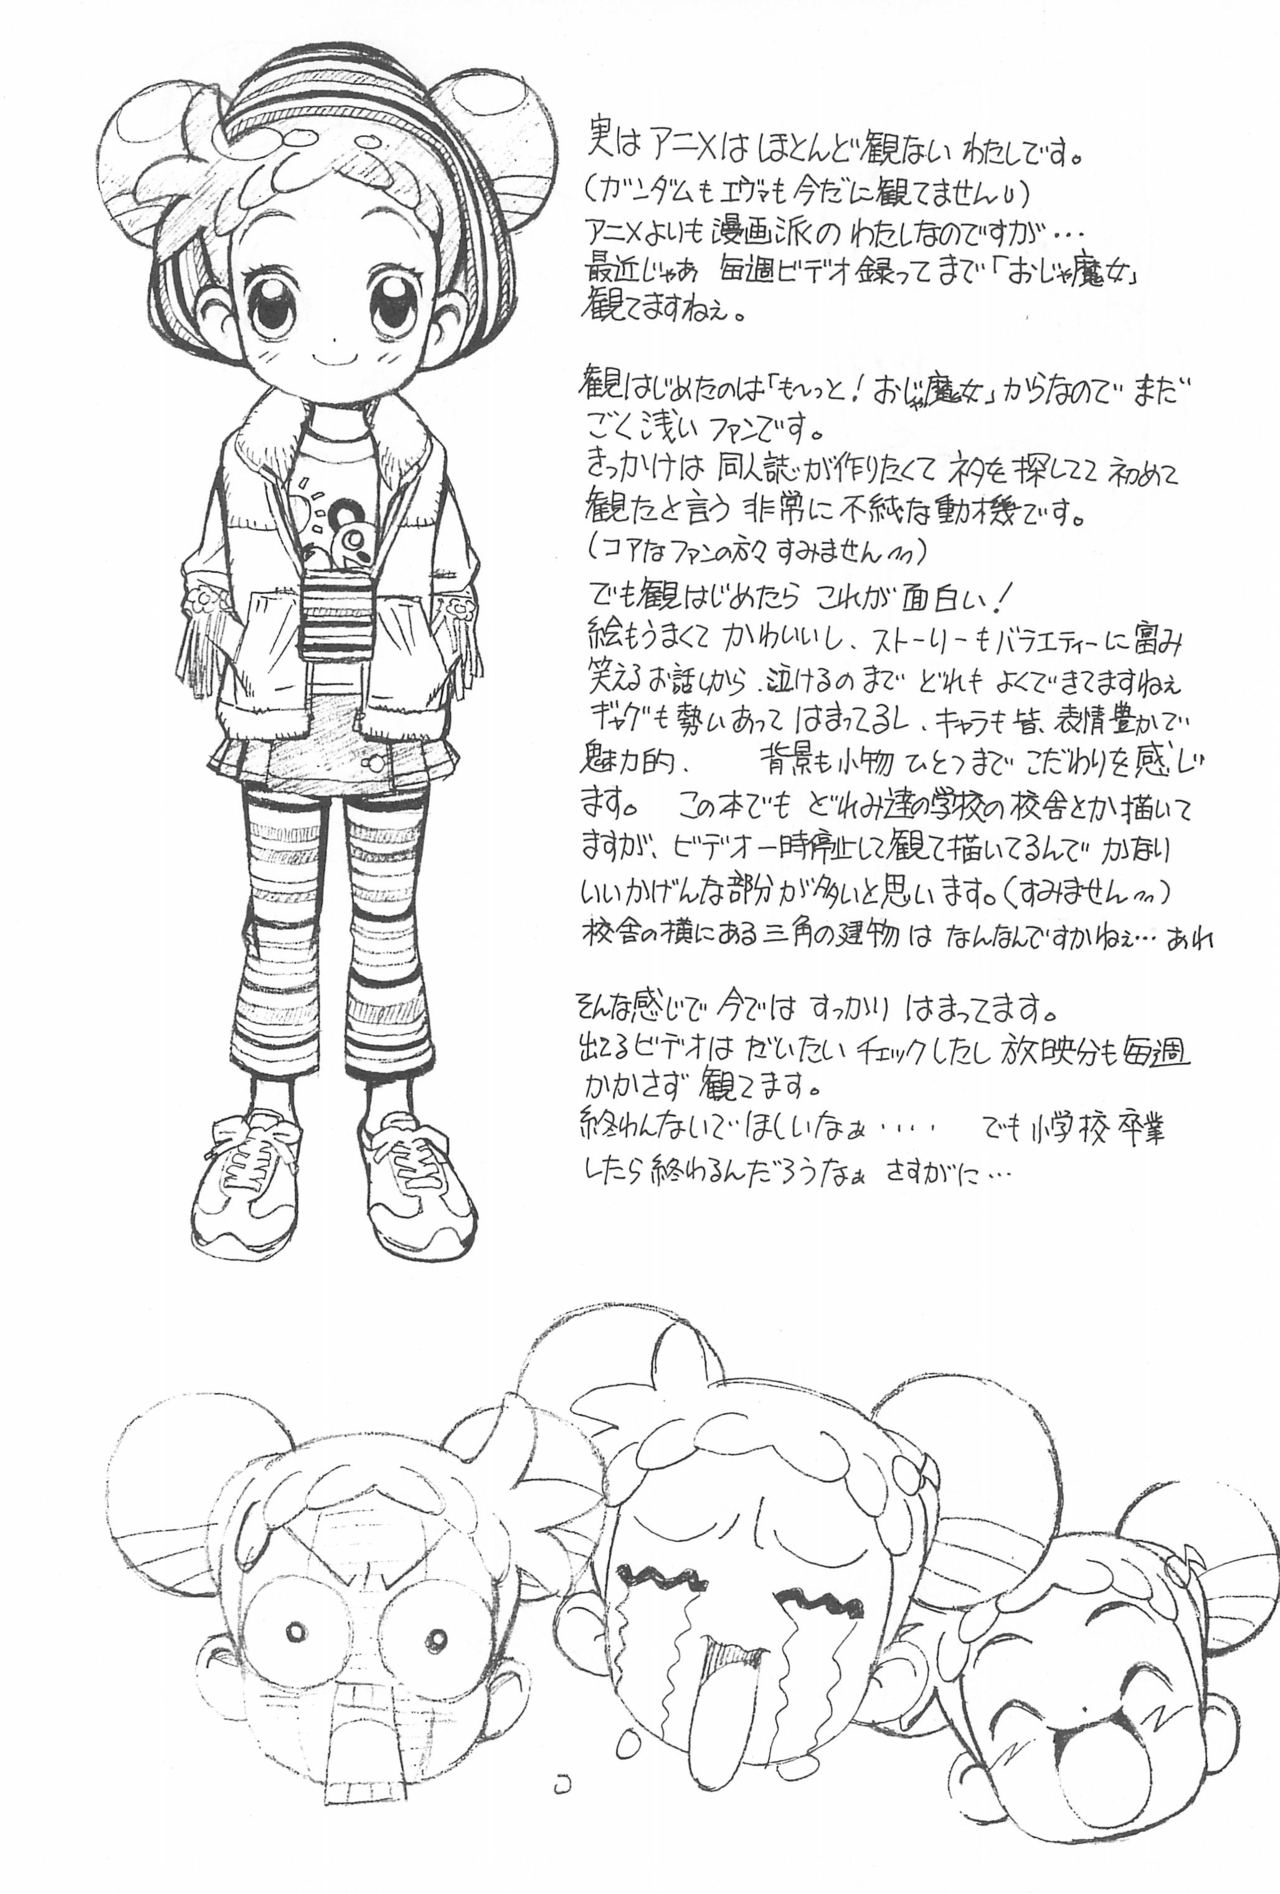 実はアニメはほとんど観ないわたしです。
(ガンダムもエヴァも今だに観てません)
アニメよりも漫画派のわたしなのですが…
最近じゃあ 毎週ビデオ録ってまで「おじゃ魔女」
観てますねぇ。
観はじめたのは「も~っと！おじゃ魔女」からなので まだ
ごく浅い ファンです。
きっかけは 同人誌が作りたくて ネタを探してて 初めて
観たと言う 非常に不純な動機です。
(コアなファンの方々 すみません)
でも観はじめたら これが面白い！
絵もうまくて かわいいし、ストーリーもバラエティーに富み
笑えるお話しから、泣けるのまで どれも よくできてますねぇ
ギャグも勢いあって はまってるし、キャラも皆、表情豊かで
魅力的、 背景も小物ひとつまで こだわりを感じ
ます。 この本でも どれみ達の学校の校舎とか描いて
ますが、ビデオ一時停止して観て描いてるんで かなり
いいかげんな部分が多いと思います。(すみません)
校舎の横にある三角の建物は なんなんですかねぇ… あれ
そんな感じで 今では すっかり はまってます。
出てるビデオは だいたい チェックしたし 放映分も毎週
かかさず 観てます。
終わんないでほしいなぁ‥‥ でも小学校卒業
したら終わるんだろうなぁ さすがに…